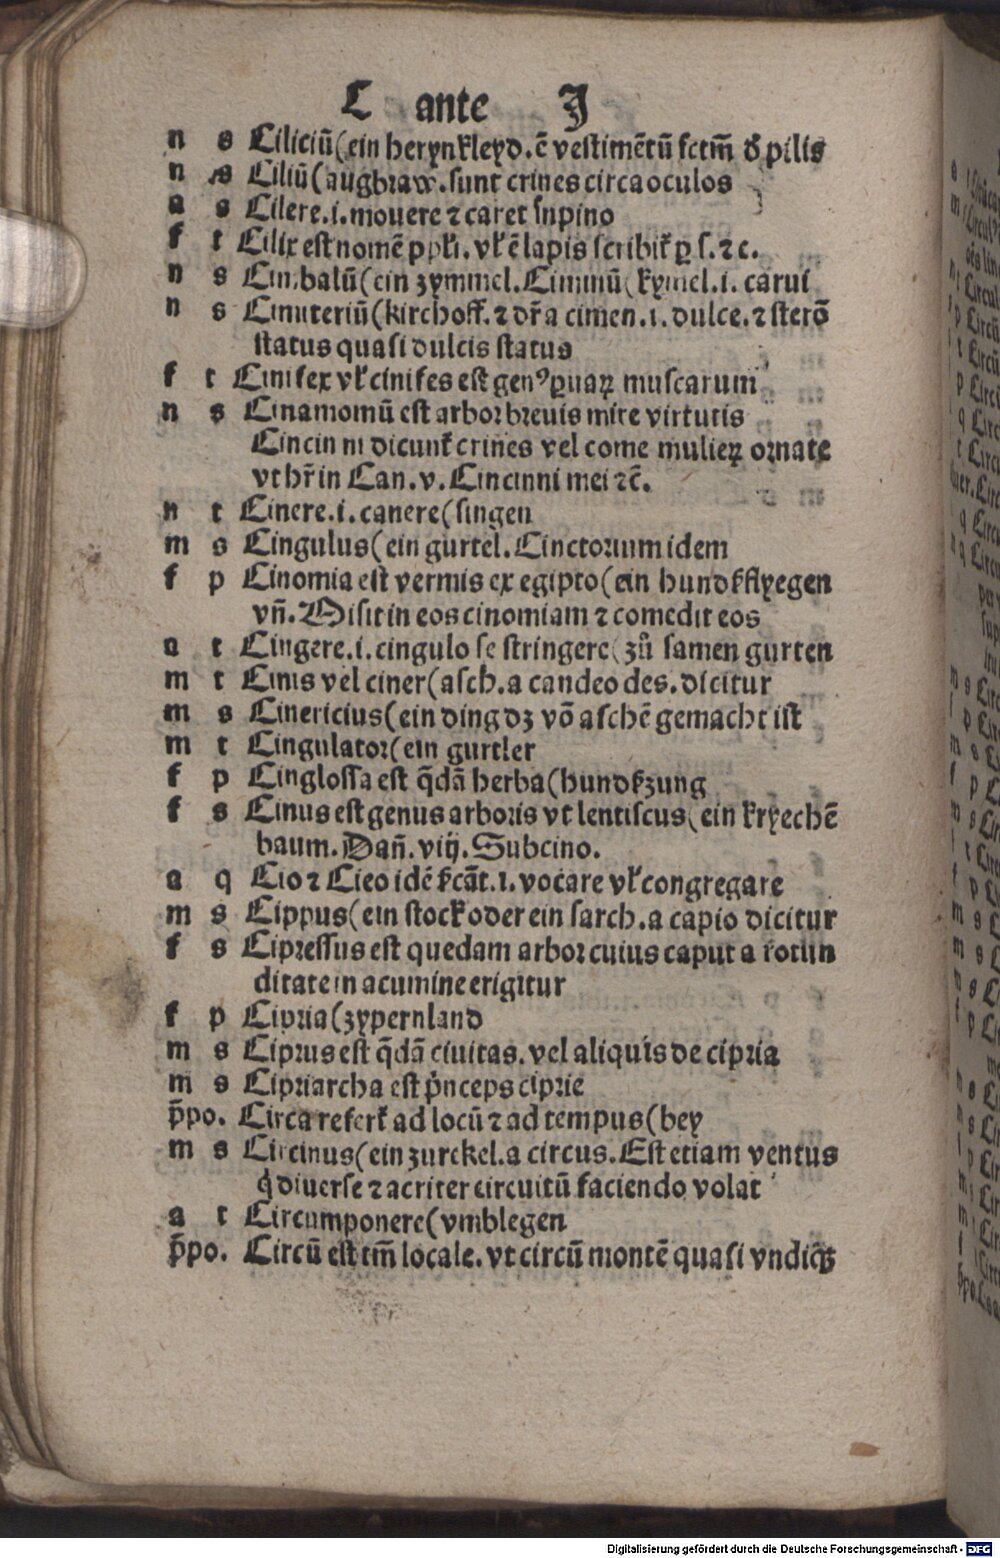 C ante J
n s Ciliciū(ein herynkleyd.ē vestimētū fctm̄ d' pilis
n s Ciliū(augbraw.sunt crines circa oculos
a s Cilere.i.mouere ⁊ caret supino
f t Cilix est nomē ppľi. vľ ē lapis scribiť ꝑ s.⁊ c.
n s Cimbalū(ein zymmel.Ciminū(kymel.i. carui
n s Cimiteriū(kirchoff.⁊ dr̄ a cimen.i.dulce.⁊ sterō
status quasi dulcis status
f t Cinifex vľ cinifes est genꝰ ꝑuaꝝ muscarum
n s Cinamomū est arbor breuis mire virtutis
Cincin ni dicunť crines vel come mulieꝝ ornate
vt hr̄ in Can.v.Cincinni mei ⁊c̄.
n t Cinere.i.canere(singen
m s Cingulus(ein gurtel.Cinctorium idem
f p Cinomia est vermis ex egipto(ein hundkflyegen
vn̄.Misit in eos cinomiam ⁊ comedit eos
a t Cingere.i.cingulo se stringere(zů samen gurten
m t Cinis vel ciner(asch.a candeo des.dicitur
m s Cinericius(ein ding dz vō aschē gemacht ist
m t Cingulator(ein gurtler
f p Cinglossa est q̄dā herba(hundkzung
f s Cinus est genus arboris vt lentiscus(ein kryechē
baum.Dan̄.viij.Subcino.
a q Cio ⁊ Cieo idē ſcāt.i.vocare vľ congregare
m s Cippus(ein stock oder ein sarch.a capio dicitur
f s Cipressus est quedam arbor cuius caput a rotun
ditate in acumine erigitur
f p Cipria(zypernland
m s Ciprus est q̄dā ciuitas.vel aliquis de cipria
m s Cipriarcha est p̄nceps ciprie
p̄po. Circa referť ad locū ⁊ ad tempus(bey
m s Circinus(ein zurckel.a circus.Est etiam ventus
q̇ diuerse ⁊ acriter circuitū faciendo volat
a t Circumponere(vmblegen
p̄po. Circū est tm̄ locale.vt circū montē quasi vndiqꝫ
Digitalisierung gefördert durch die Deutsche Forschungsgemeinschaft - DFG